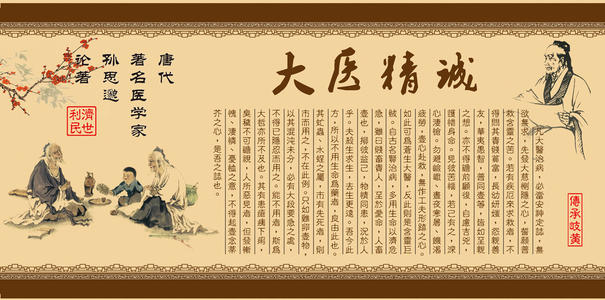 大医精诚
唐代
著名医学家
孙思邈
论著
濟世
利民
凡大醫治病，必當安神定誌，無
欲無求，先發大慈惻隱之心，誓願普
救含靈之苦。若有疾厄來求救者，不
得問其貴賤貧富，長幼妍媸，怨親善
友，華夷愚智，普同壹等，皆如至親
之想。亦不得瞻前顧後，自慮吉兇，
護惜身命。見彼苦惱，若己有之，深
心淒愴。勿避嶮巇、晝夜寒暑、饑渴
疲勞，壹心赴救，無作工夫形跡之心。
如此可為蒼生大醫，反此則是含靈巨
賊。自古名賢治病，多用生命以濟危
急，雖曰賤畜貴人，至於愛命，人畜
壹也，損彼益己，物情同患，況於人
乎。夫殺生求生，去生更遠。吾今此
方，所以不用生命為藥者，良由此也。
其虻蟲、水蛭之屬，市有先死者，則
市而用之，不在此例。只如雞卵壹物，
以其混沌未分，必有大段要急之處，
不得已隱忍而用之。能不用者，斯為
大哲亦所不及也。其有患瘡痍下痢，
臭穢不可瞻視，人所惡見者，但發慚
愧、淒憐、憂恤之意，不得起壹念蒂
芥之心，是吾之誌也。
傳承岐黄